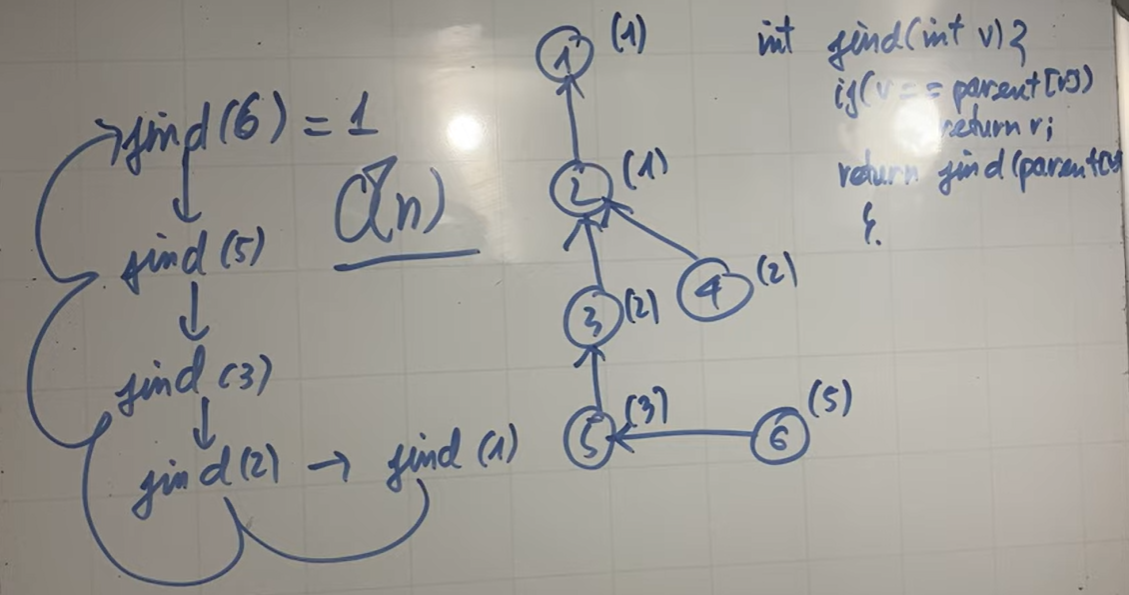 find(6) = 1
O(n)
find(5)
find(3)
find(2) → find(1)
1 (1)
2 (1)
3 (2)
4 (2)
5 (3)
6 (5)
int find(int v){
if(v == parent[v])
return v;
return find(parent[v
}